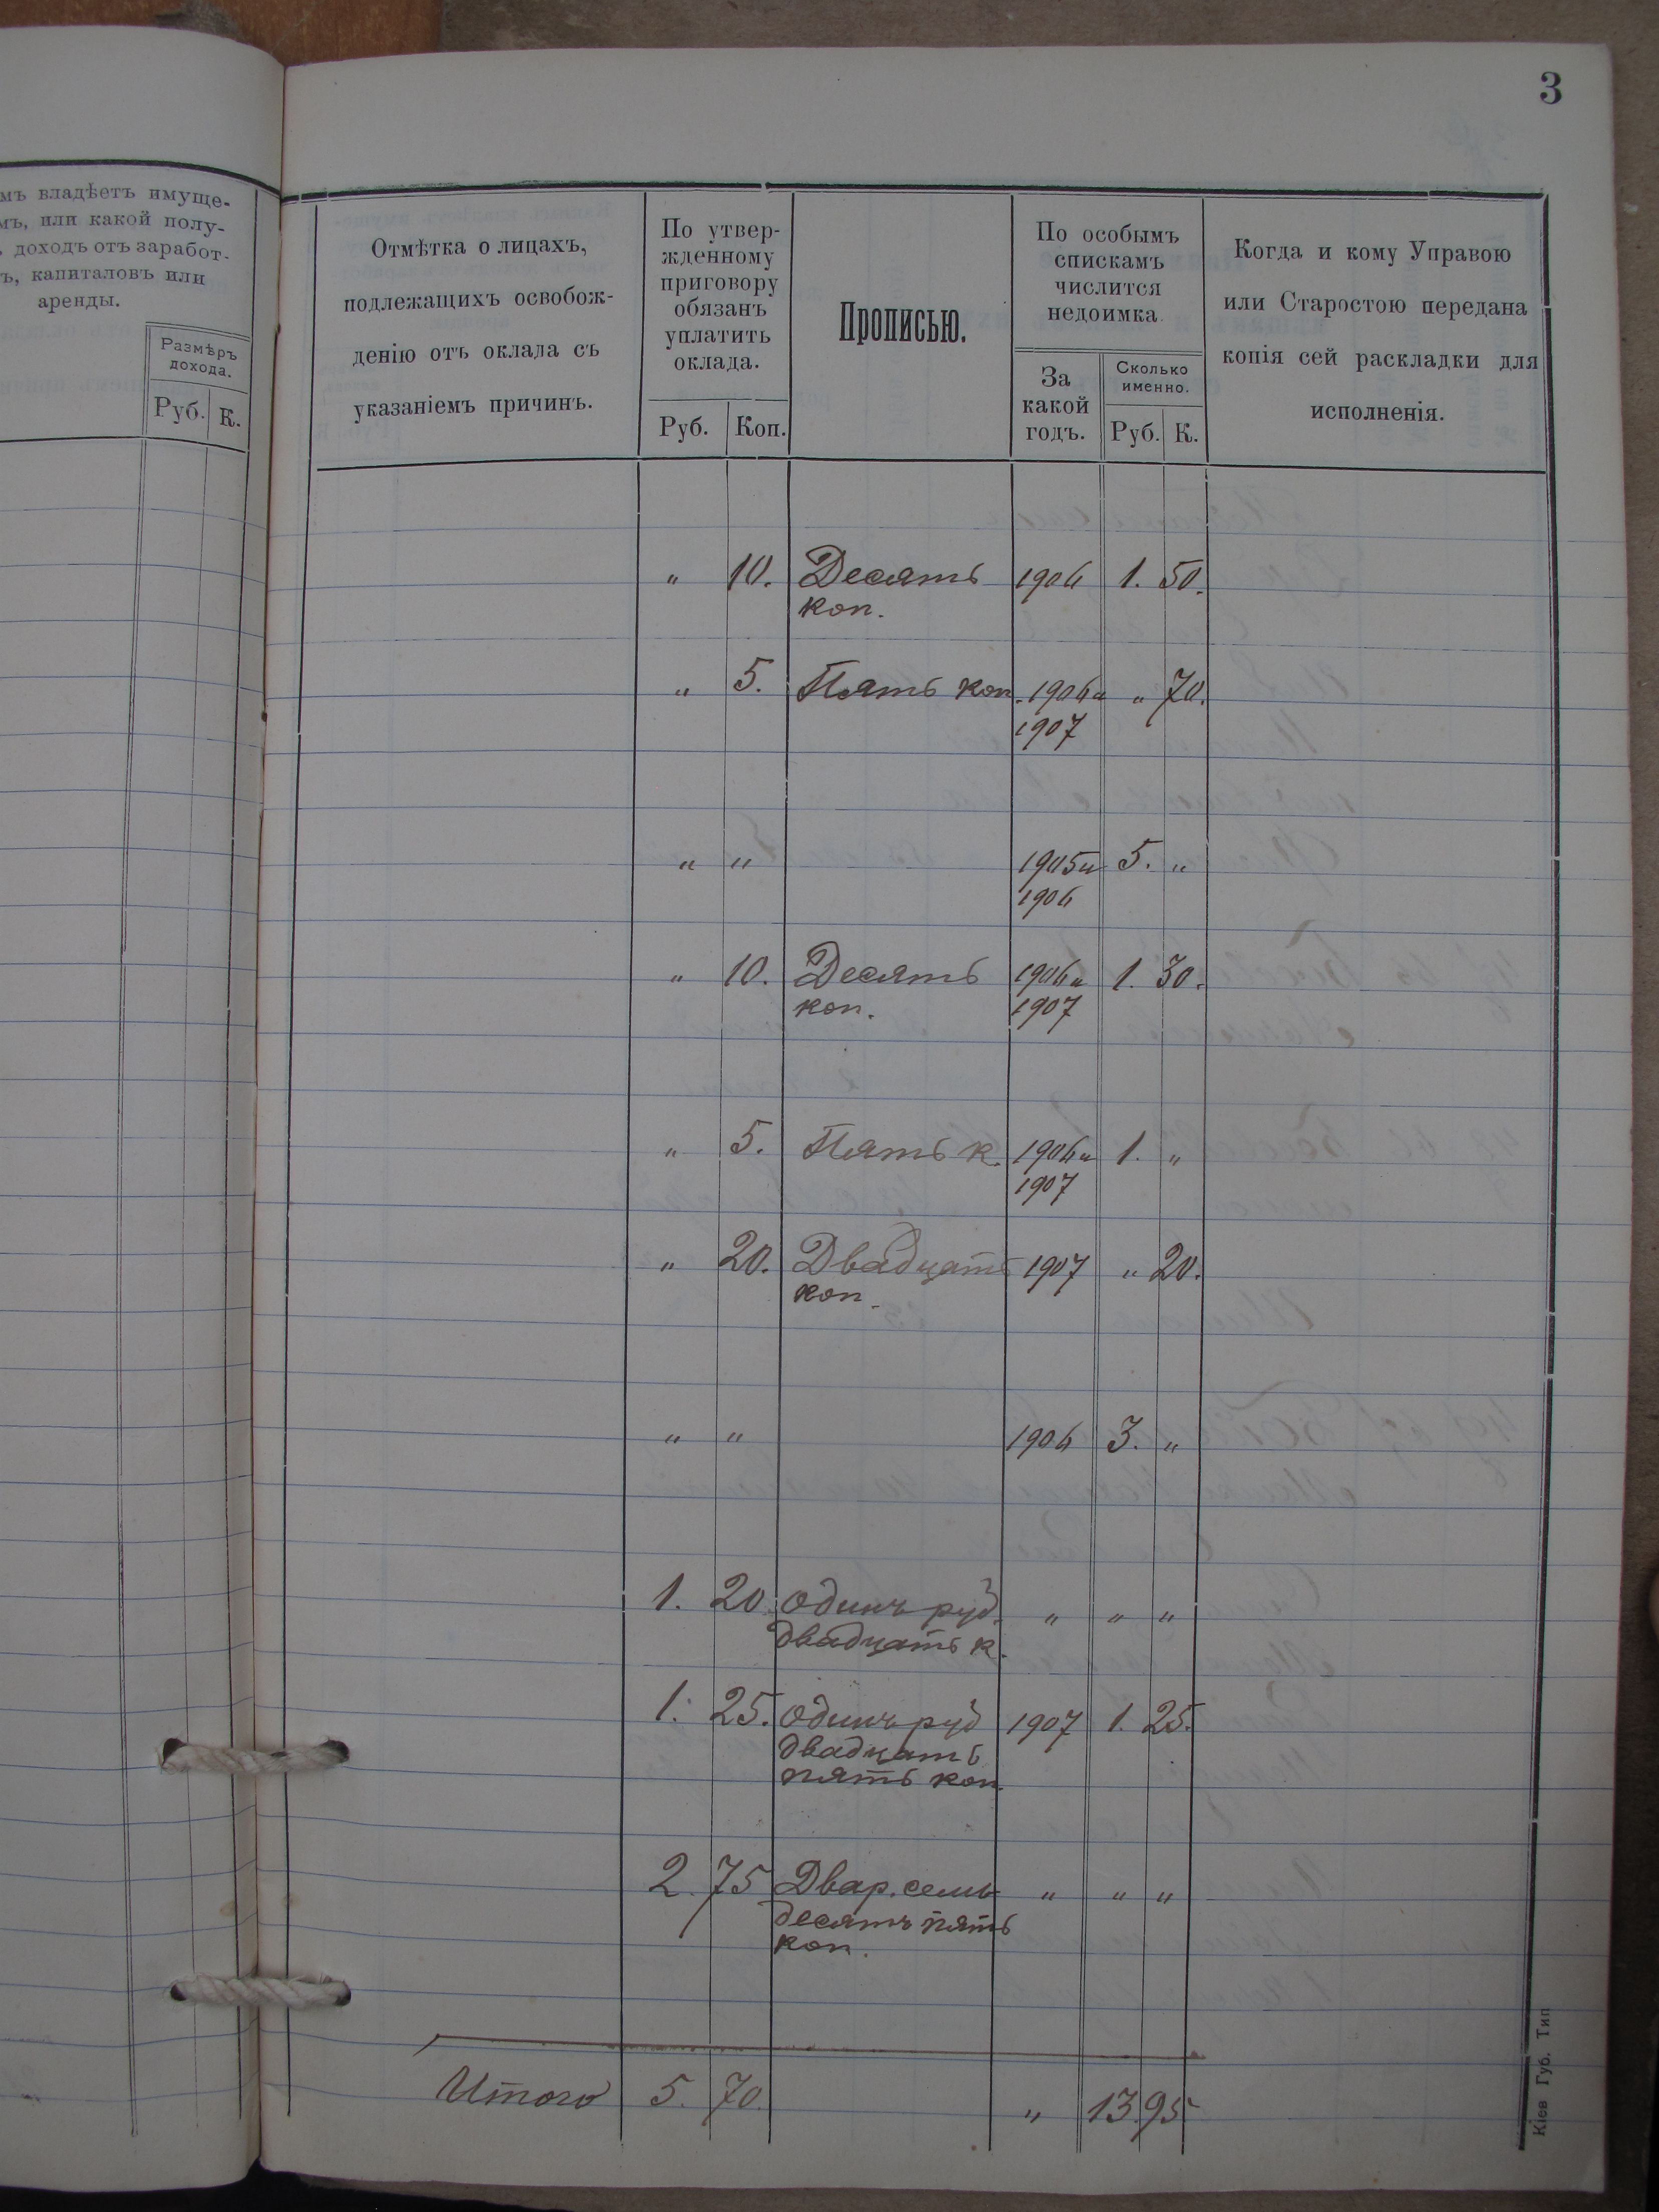 3
мъ владѣетъ имуще-
мъ, или какой полу-
доходъ отъ заработ-
ъ, капиталовъ или
аренды.
Размѣръ
дохода.
Руб. К.
Отмѣтка о лицахъ,
подлежащихъ освобож-
денію отъ оклада съ
указаніемъ причинъ.
По утвер-
жденному
приговору
обязанъ
уплатить
оклада.
Руб. Коп.
Прописью.
По особымъ
спискамъ
числится
недоимка
За
какой
годъ.
Сколько
именно.
Руб. К.
Когда и кому Управою
или Старостою передана
копія сей раскладки для
исполненія.
" 10. Десять 1906 1. 50.
коп.
" 5. Пять коп. 1906 и " 70.
1907
" " 1905 и 5. "
1906
" 10. Десять 1906 и 1. 30.
коп. 1907
" 5. Пять к. 1906 и 1. "
1907
" 20. Двадцать 1907 " 20.
коп.
" " 1906 3. "
1. 20. Одинъ руб. " " "
двадцать к.
1. 25. Одинъ руб 1907 1. 25.
двадцать
пять коп.
2. 75 Два р. семь " " "
десятъ пять
коп.
Итого 5. 70. " 13. 95
Кіев Губ. Тип